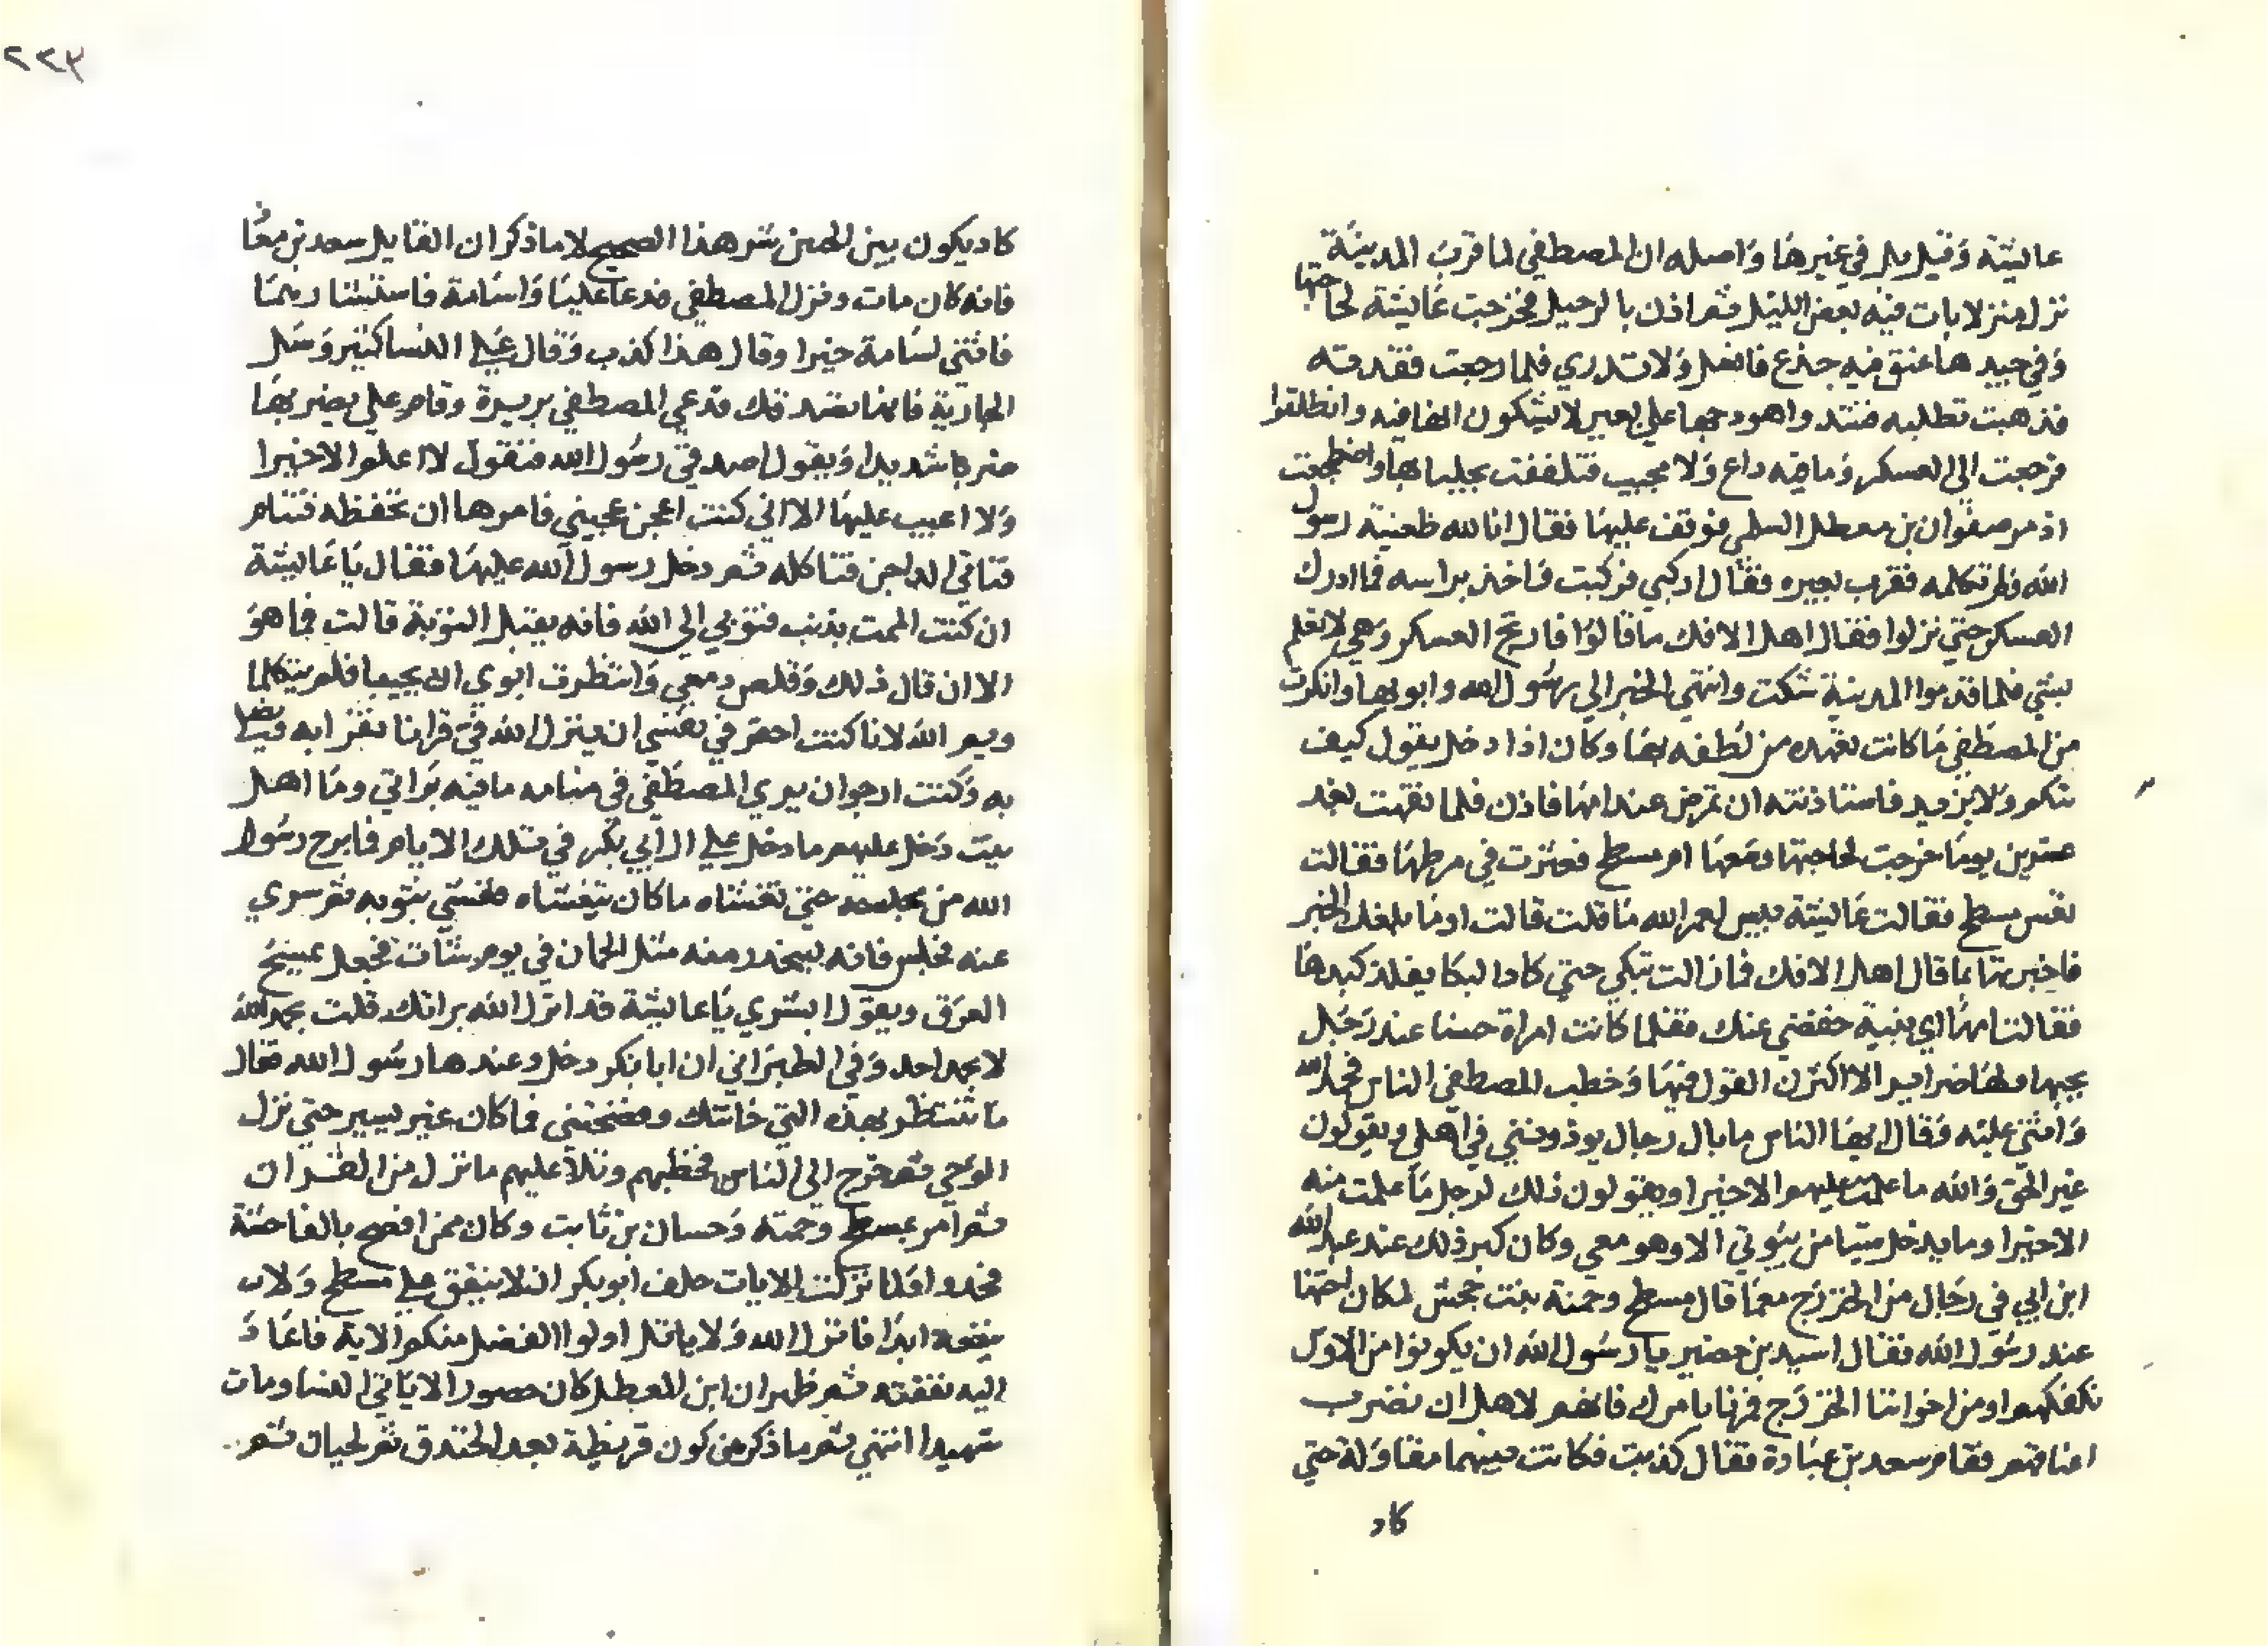 عايشة وقيل بل في غيرها واصله ان المصطفي لما قرب المدينة
نزل منزلا بات فيه بعض الليل ثم اذن بالرحيل فخرجت عايشة لحاجتها
وفي جيدها عنق فيه جذع فانسل ولا تدري فلما رجعت فقدته
فذهبت تطلبه فشد واهودجها علي بعير لا يشكون انها فيه وانطلقوا
فرجعت الي العسكر وما فيه داع ولا مجيب فتلففت بجلبابها واضطجعت
اذ مر صفوان بن معطل السلمي فوقف عليها فقال انا لله ظعينة رسول
الله ولم تكلمه فقرب بعيره فقال اركبي فركبت فاخذ براسه فما ادرك
العسكر حتي نزلوا فقال اهل الافك ما قالوا فارتج العسكر وهي لا تعلم
بشي فلما قدموا المدينة شكت وانتهي الخبر الي رسول الله وابويها وانكرت
من المصطفي ما كانت تعهده من لطفه بها وكان اذا دخل يقول كيف
تيكم ولا يزيد فاستاذنته ان تمرض عند امها فاذن فلما نقهت بعد
عشرين يوما خرجت لحاجتها ومعها ام مسطح فعثرت في مرطها فقالت
تعس مسطح فقالت عايشة بيس لعمر الله ما قلت قالت اوما بلغك الخبر
فاخبرتها بما قال اهل الافك فما زالت تبكي حتي كاد البكا يفلذ كبدها
فقالت امها اي بنية خفضي عنك فقلما كانت امراة حسنا عند رجل
يحبها ولها ضراير الا اكثرن القول فيها وخطب المصطفي الناس فحمد الله
واثني عليه وقال ايها الناس ما بال رجال يوذونني في اهلي ويقولون
غير الحق والله ما علمت عليهم الا خيرا ويقولون ذلك لرجل ما علمت منه
الا خيرا وما يدخل بيتا من بيوتي الا وهو معي وكان كبر ذلك عند عبد الله
ابن ابي في رجال من الخزرج معما قال مسطح وحمنة بنت جحش لمكان اختها
عند رسول الله فقال اسيد بن حضير يا رسول الله ان يكونوا من الاوس
نكفكهم او من اخواننا الخزرج فمرنا بامرك فانهم لاهل ان نضرب
اعناقهم فقام سعد بن عبادة فقال كذبت فكانت بينهما مقاولة حتي
كاد
٢٢٣
كاد يكون بين الحيين شر هذا الصحيح لا ما ذكر ان القايل سعد بن معاذ
فانه كان مات ونزل المصطفي فدعا عليا واسامة فاستشارهما
فاثني اسامة خيرا وقال هذا كذب وقال علي النسا كثير وسل
الجارية فانها تصدقك فدعي المصطفي بريرة وقام علي يضربها
ضربا شديدا ويقول اصدقي رسول الله فتقول لا اعلم الا خيرا
ولا اعيب عليها الا اني كنت اعجن عجيني فامرها ان تحفظه فتنام
فتاتي الداجن فتاكله ثم دخل رسول الله عليها فقال يا عايشة
ان كنت الممت بذنب فتوبي الي الله فانه يقبل التوبة قالت فما هو
الا ان قال ذلك وقلص دمعي وانتظرت ابوي ان يجيبا فلم يتكلما
وايم الله لانا كنت احقر في نفسي ان ينزل الله في قرانا نقرا به ويصلي
به وكنت ارجو ان يري المصطفي في منامه ما فيه براتي وما اهل
بيت دخل عليهم ما دخل علي ال ابي بكر في تلك الايام فما برح رسول
الله من مجلسه حتي تغشاه ما كان يتغشاه فغشي بثوبه ثم سري
عنه فجلس فانه ليتحدر منه مثل الجمان في يوم شات فجعل يمسح
العرق ويقول ابشري يا عايشة قد انزل الله براتك قلت بحمد الله
لا بحمد احد وفي الطبراني ان ابا بكر دخل وعندها رسول الله فقال
ما تنتظر بهذه التي خانتك وفضحتني فما كان غير يسير حتي نزل
الوحي ثم خرج الي الناس فخطبهم وتلا عليهم ما نزل من القران
ثم امر بمسطح وحمنة وحسان بن ثابت وكان ممن افصح بالفاحشة
فحدوا فلما نزلت الايات حلف ابو بكر ان لا ينفق علي مسطح ولا
ينفعه ابدا فانزل الله ولا ياتل اولوا الفضل منكم الاية فاعاد
اليه نفقته ثم ظهر ان ابن المعطل كان حصورا لا ياتي النسا ومات
شهيدا انتهي ثم ما ذكر من كون قريظة بعد الخندق ثم لحيان ثم